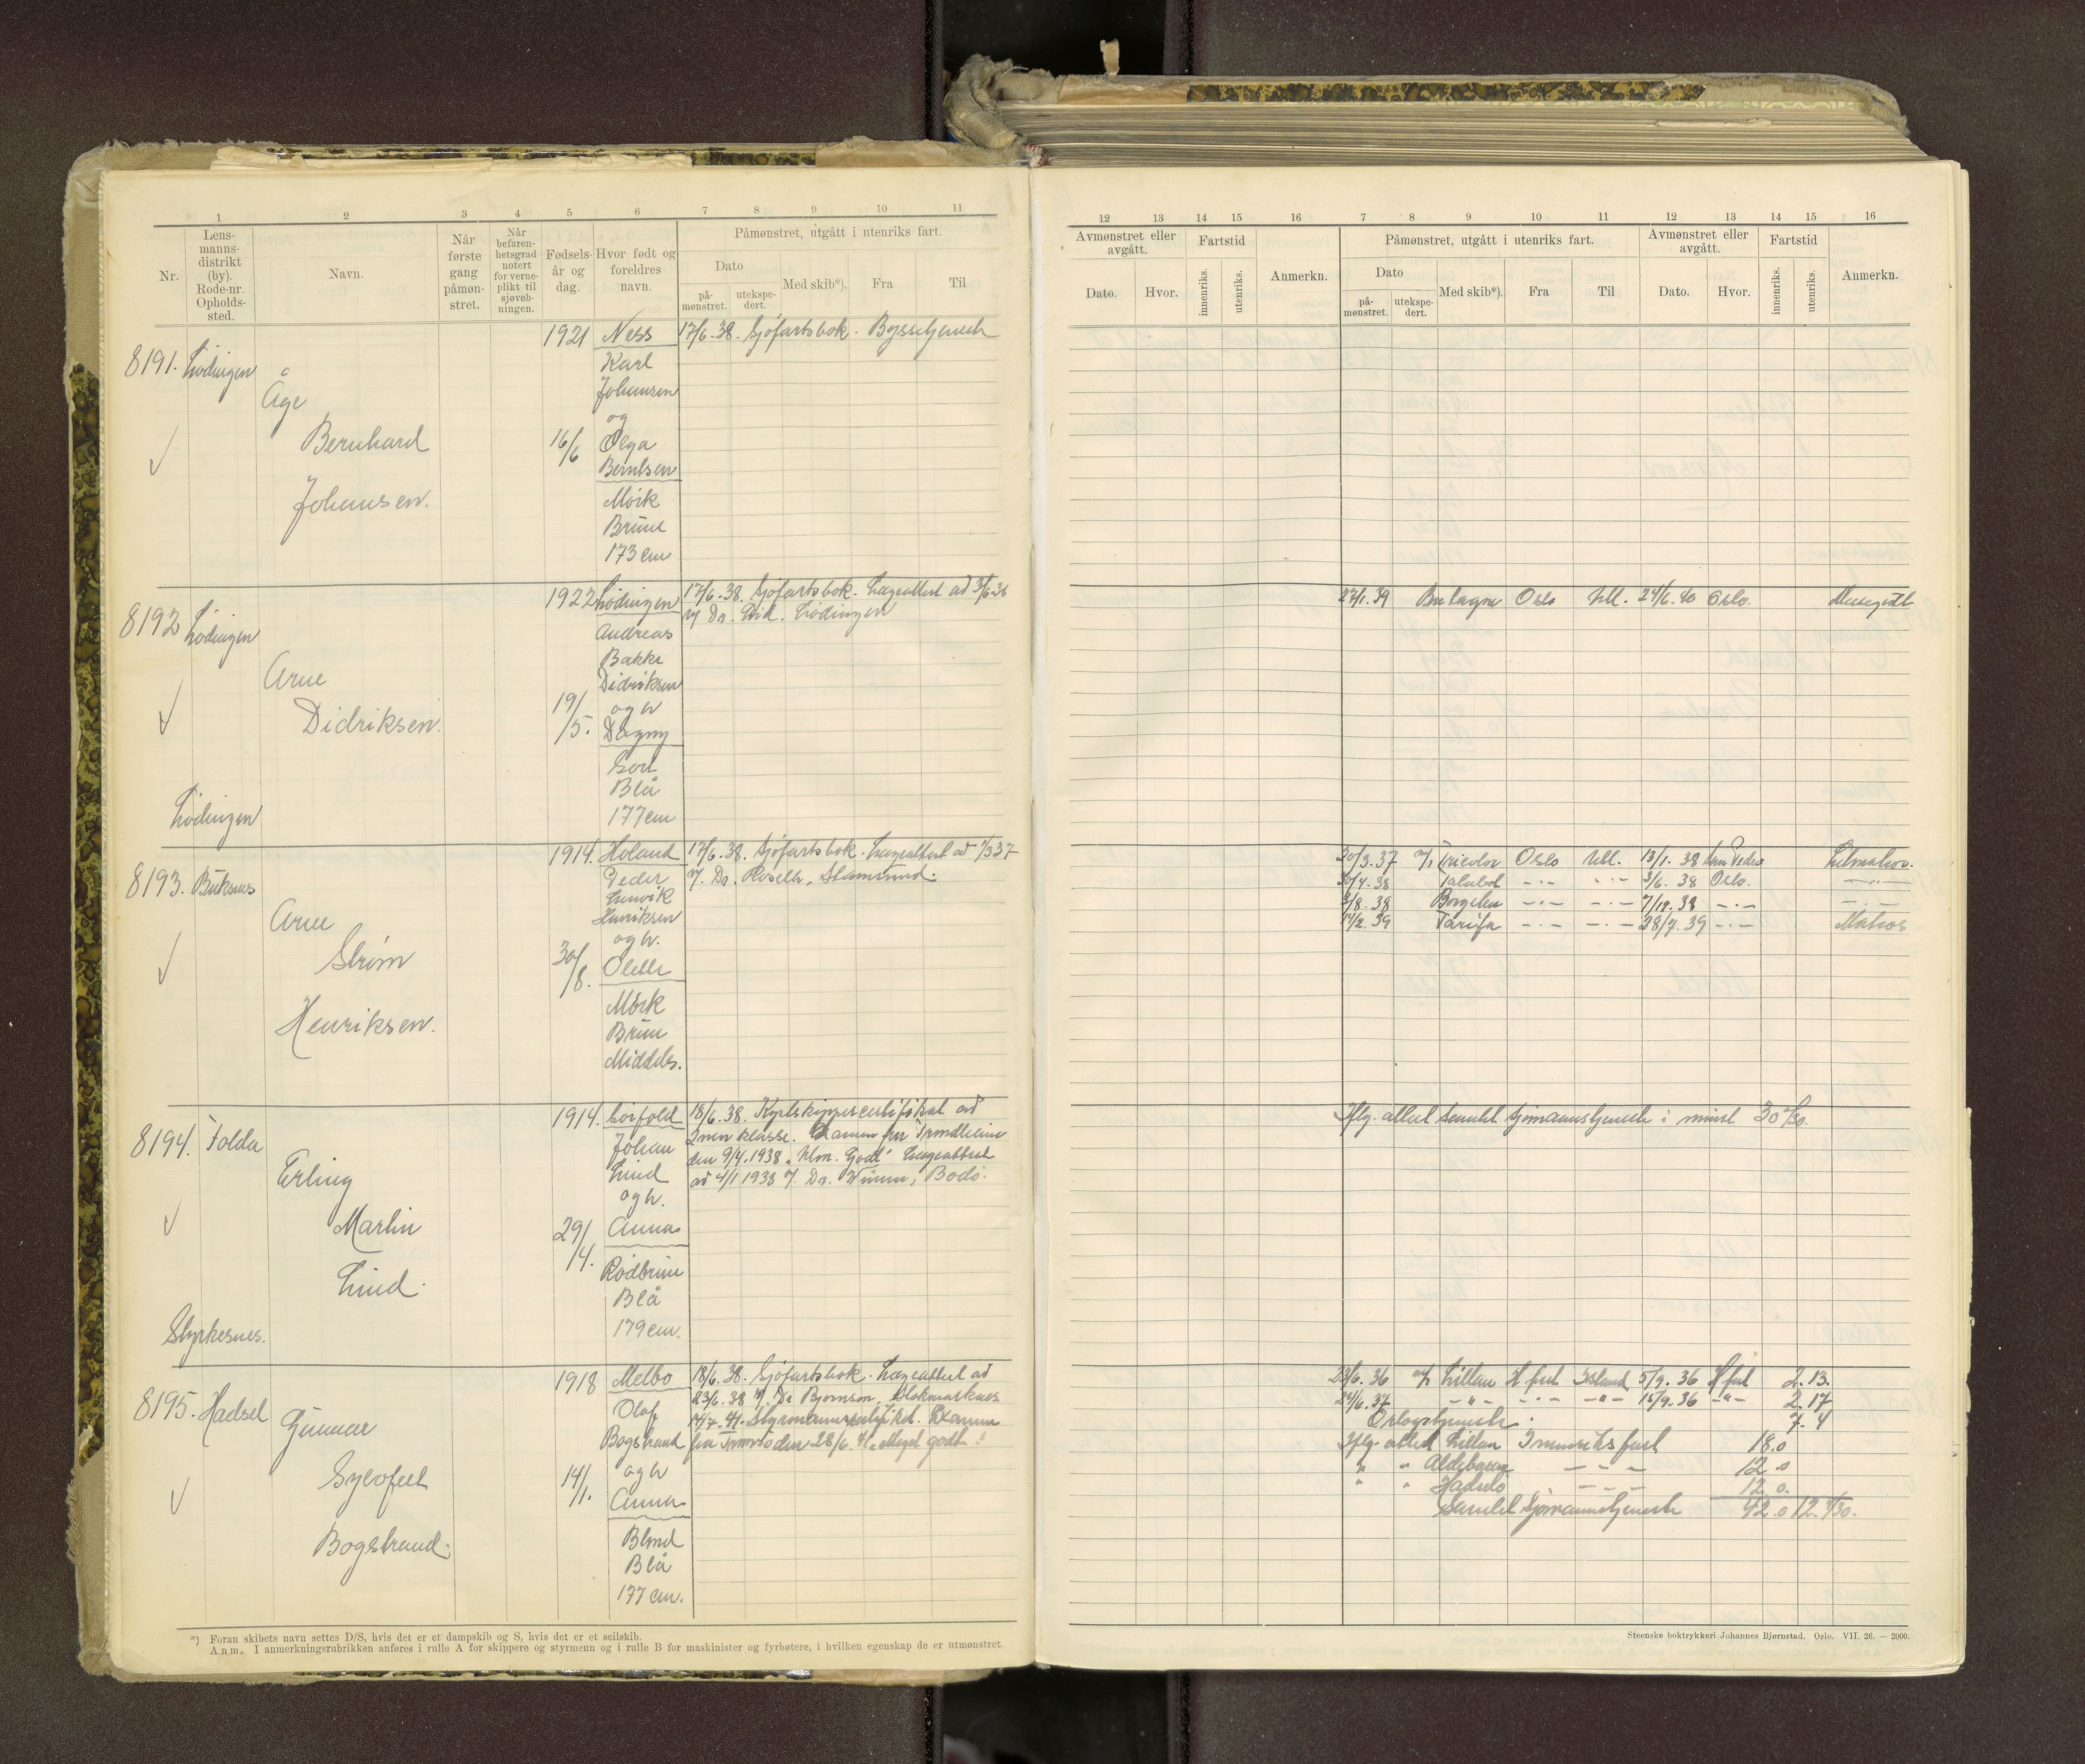 1 2 3 4 5 6 7 8 9 10 11
Nr.
Lens-
manns-
distrikt
(by).
Rode-nr.
Opholds-
sted.
Navn.
Når
første
gang
påmøn-
stret.
Når
befaren-
hetsgrad
notert
for verne-
plikt til
sjøveb-
ningen.
Fødsels-
år og
dag.
Hvor født og
foreldres
navn.
Påmønstret, utgått i utenriks fart.
Dato
på-
mønstret.
utekspe-
dert.
Med skib*).
Fra
Til
8191. Lødingen
Åge
Bernhard
Johansen.
1921
16/6
Ness
Karl
Johansen
og
Olga
Berntsen
Mørk
Brune
173 cm
17/6.38. Sjøfartsbok. Byssetjeneste
8192 Lødingen
Arne
Didriksen.
Lødingen
1922
19/5.
Lødingen
Andreas
Bakke
Didriksen
og h
Dagny
Sort
Blå
177 cm
17/6.38. Sjøfartsbok. Lægeattest av 3/6.38
v/ Dr. Lødingen
8193. Buksnes
Arne
Strøm
Henriksen.
1914.
30/8.
Holand
Peder
Henrik
Henriksen
og h.
Olette
Mørk
Brun
Middels.
17/6.38. Sjøfartsbok. Lægeattest av 1/3 37
v/. Dr. Stamsund.
8194. Folda
Erling
Martin
Lind.
Styrkesnes.
1914.
29/4.
Sørfold
Johan
Lind
og h.
Anna
Rødbrun
Blå
179 cm.
18/6.38. Kystskippercertifikat av
2nen klasse. Eksamen fra Trondheim
den 9/4.1938 "Godt" Lægeattest
av 4/1 1938 v/. Dr. Bodø.
8195. Hadsel
Gunnar
Sylvfest
Bogstrand.
1918
14/1.
Melbo
Olaf
Bogstrand
og h
Anna
Blond
Blå
177 cm.
18/6.38. Sjøfartsbok. Lægeattest av
23/6.38 v/. Dr Bjørnson, Stokmarknes
14/7.41. Styrmannscertifikat. Eksamen
fra Tromsø den 28/6.41 "Meget godt"
*) Foran skibets navn settes D/S, hvis det er et dampskib og S, hvis det er et seilskib.
Anm. I anmerkningsrubrikken anføres i rulle A for skippere og styrmenn og i rulle B for maskinister og fyrbøtere, i hvilken egenskap de er utmønstret.
12 13 14 15 16 7 8 9 10 11 12 13 14 15 16
Avmønstret eller
avgått.
Dato.
Hvor.
Fartstid
innenriks.
utenriks.
Anmerkn.
Påmønstret, utgått i utenriks fart.
Dato
på-
mønstret.
utekspe-
dert.
Med skib*).
Fra
Til
Avmønstret eller
avgått.
Dato.
Hvor.
Fartstid
innenriks.
utenriks.
Anmerkn.
27/1.39 Bretagne Oslo Utl. 24/6.40 Oslo. Messegutt
30/3.37 m/s Tricolor Oslo Utl. 13/1.38 San Pedro Letmatros.
30/4.38 Talabot -"- -"- 3/6.38 Oslo. -"-
3/8.38 Borgelen -"- -"- 7/12.38 -"- -"-
14/2.39 Tarifa -"- -"- 28/7.39 -"- Matros
Iflg. attest samlet sjømannstjeneste i minst
23/6.36 m/k Lillan H fest Island 5/9.36 H fest 2.13.
24/6.37 -"- -"- -"- 15/9.36 -"- 2.17
Orlogstjeneste. 7.4
Iflg. attest Lillan Innenriksfart 18.0
" " -"- 12.0
" " Hadselø -"- 12.0.
Samlet sjømannstjeneste 42.0 12.4/30.
Steenske boktrykkeri Johannes Bjørnstad. Oslo. VII. 26. — 2000.